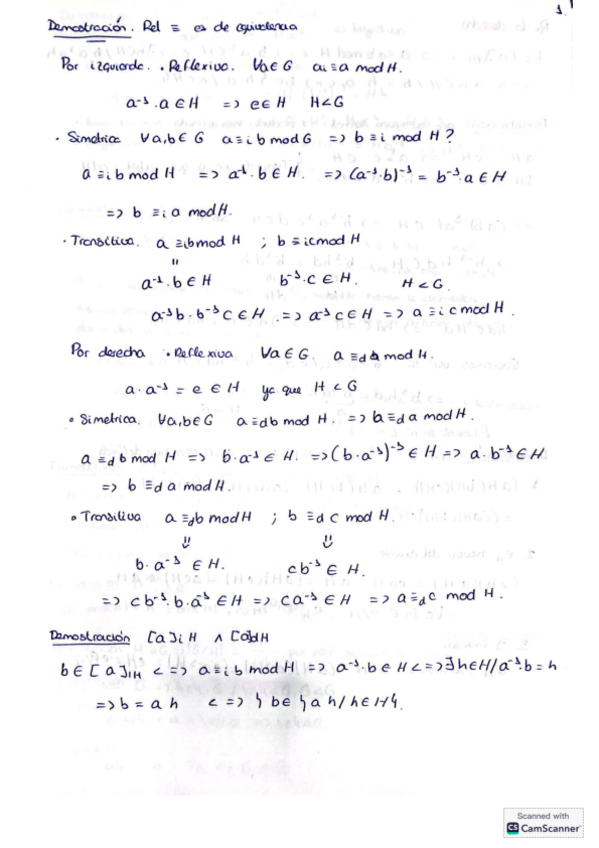 1.
Demostración. Rel ≡ es de equivalencia
Por izquierda. · Reflexiva. ∀a∈G a≡i a mod H.
a⁻¹·a∈H => e∈H H<G
· Simetrica ∀a,b∈G a≡i b mod G => b≡i mod H?
a≡i b mod H => a⁻¹·b∈H. => (a⁻¹·b)⁻¹ = b⁻¹·a∈H
=> b≡i a mod H.
· Transitiva. a≡i b mod H ; b≡i c mod H
=
a⁻¹·b∈H b⁻¹·c∈H. H<G.
a⁻¹b·b⁻¹c∈H. => a⁻¹c∈H => a≡i c mod H.
Por derecha · Reflexiva ∀a∈G. a≡d a mod H.
a·a⁻¹ = e∈H ya que H<G
· Simetrica. ∀a,b∈G a≡d b mod H. => b≡d a mod H.
a≡d b mod H => b·a⁻¹∈H. => (b·a⁻¹)⁻¹∈H => a·b⁻¹∈H
=> b≡d a mod H.
· Transitiva a≡d b mod H ; b≡d c mod H.
⇓ ⇓
b·a⁻¹∈H. cb⁻¹∈H.
=> cb⁻¹·b·a⁻¹∈H => ca⁻¹∈H => a≡d c mod H.
Demostración [a]iH ∧ [a]dH
b∈[a]iH <=> a≡i b mod H => a⁻¹·b∈H <=> ∃h∈H/a⁻¹·b=h
=> b=ah <=> { b∈{ah/h∈H}.
Scanned with
CS CamScanner